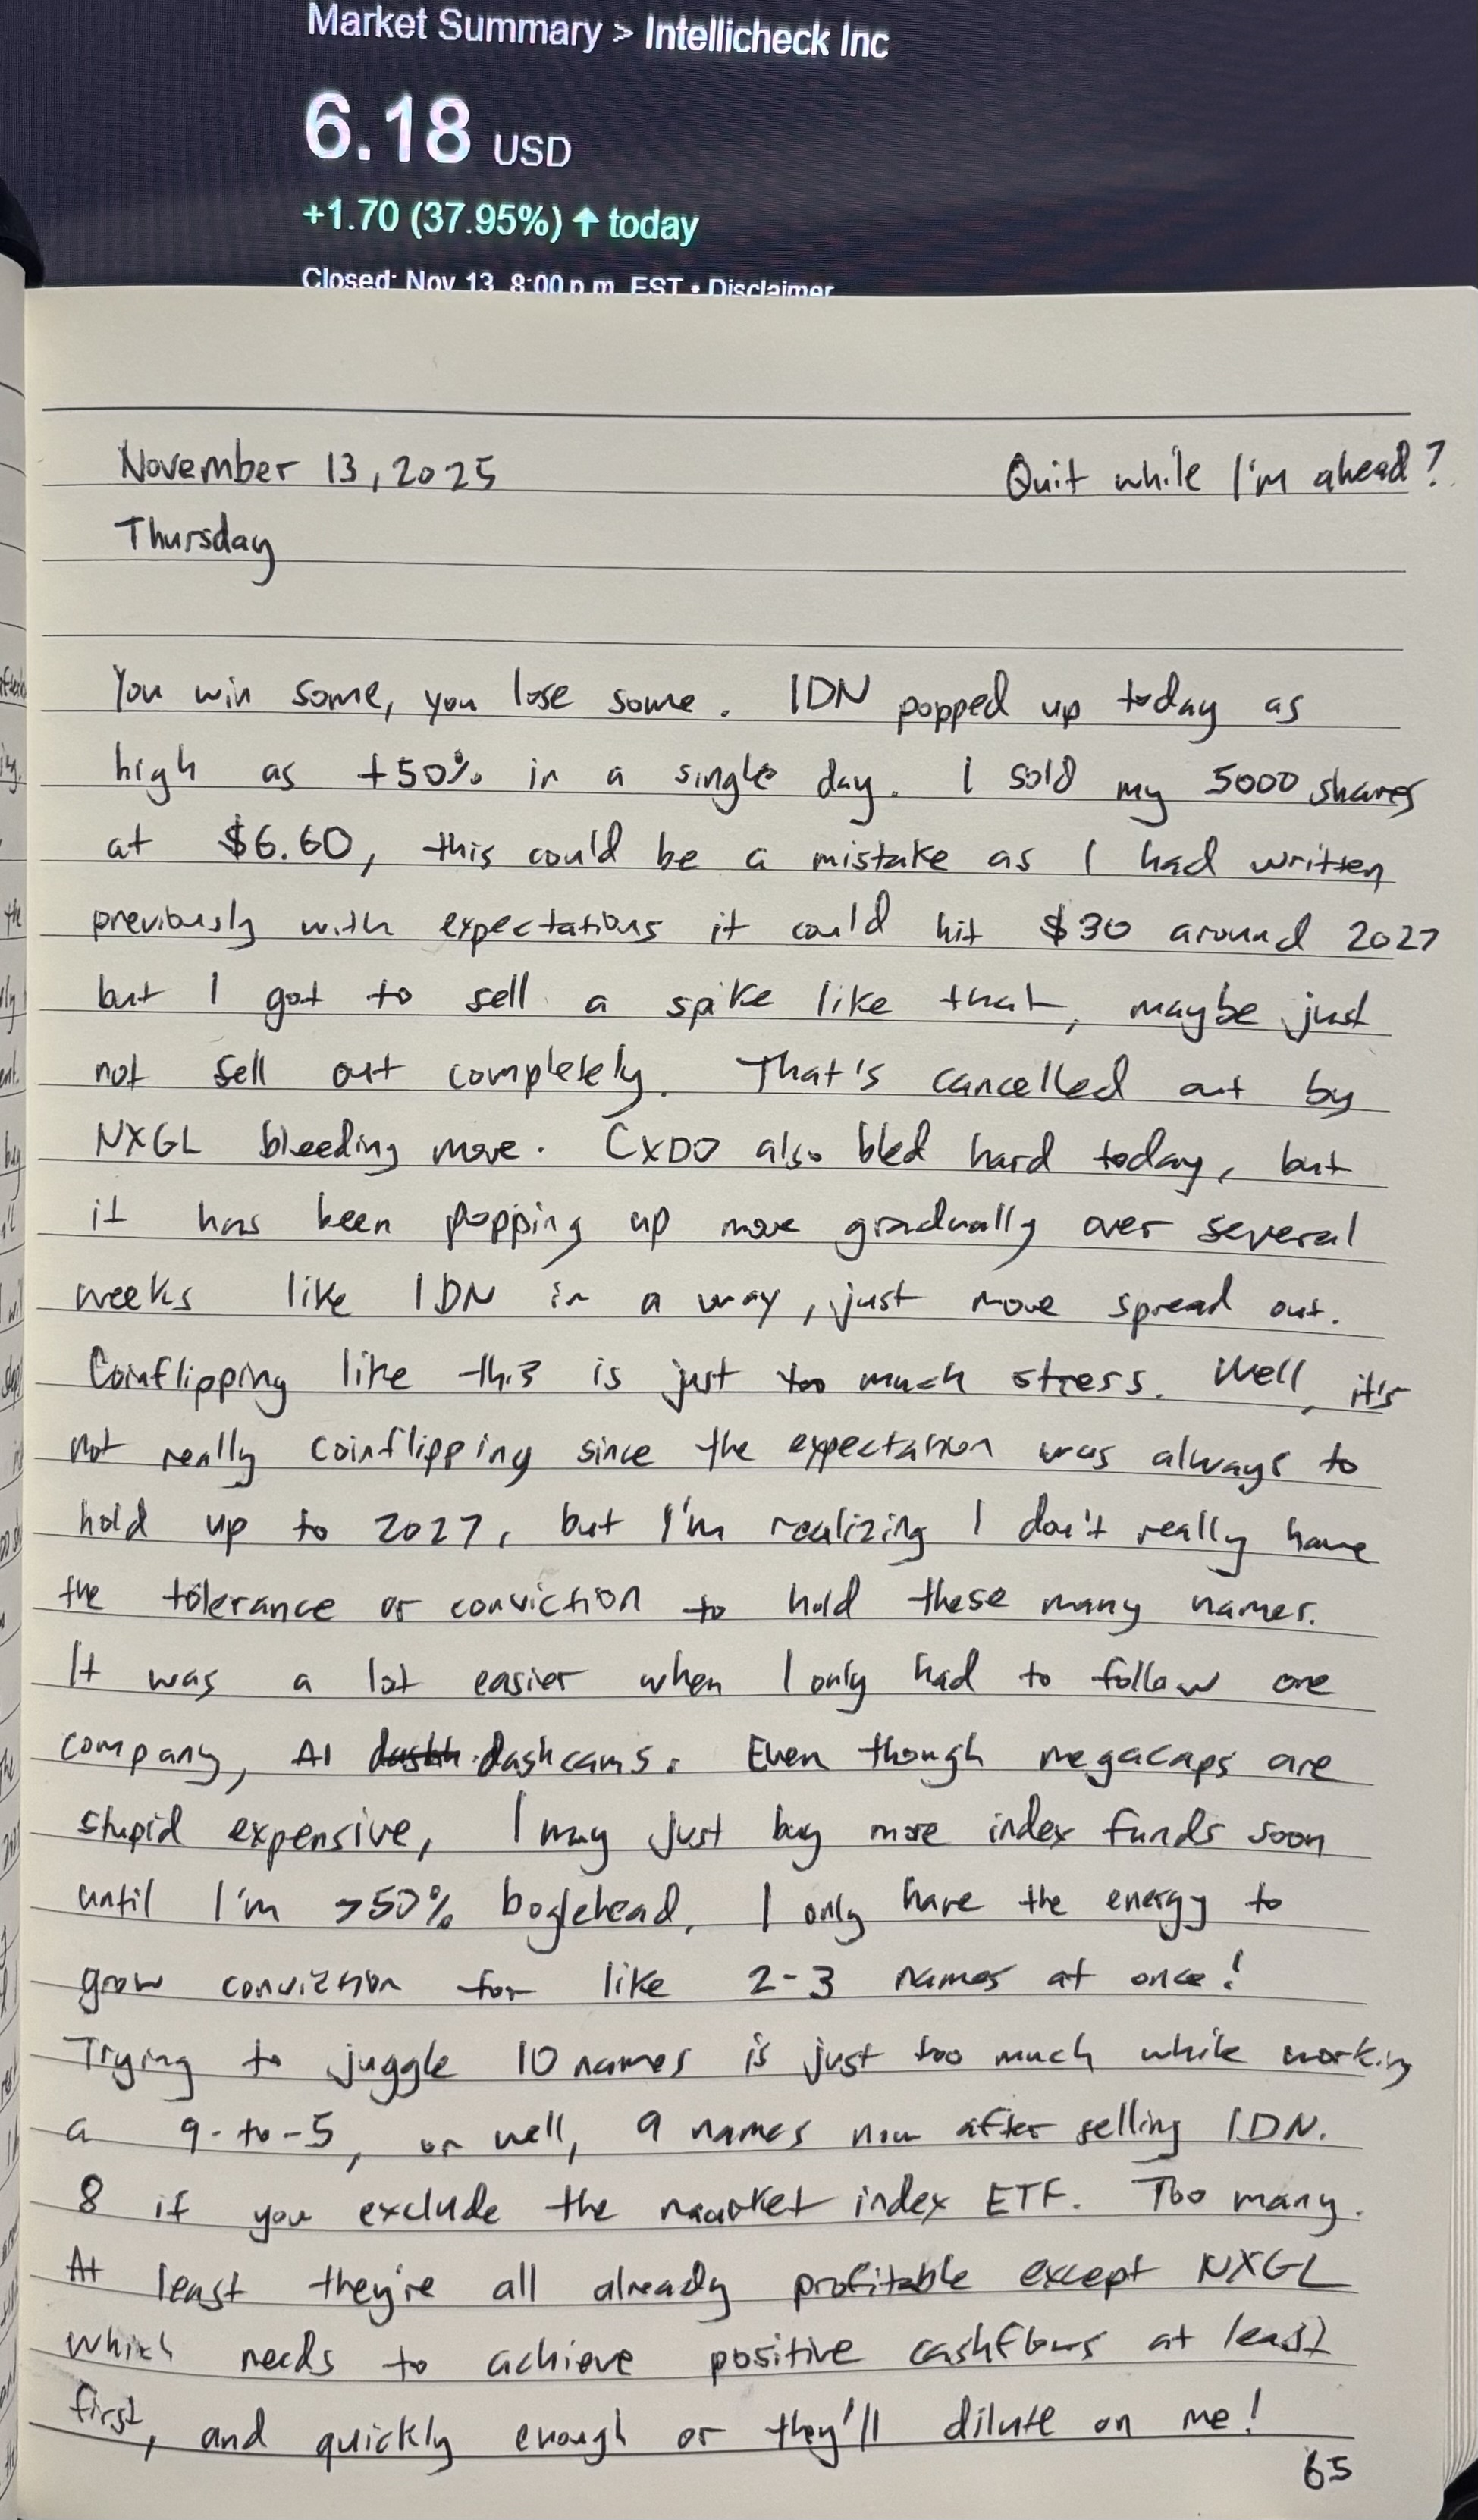 Market Summary > Intellicheck Inc
6.18 USD
+1.70 (37.95%) ↑ today
Closed: Nov 13, 8:00 p.m. EST • Disclaimer
November 13, 2025 Quit while I'm ahead?
Thursday
You win some, you lose some. IDN popped up today as
high as +50% in a single day. I sold my 5000 shares
at $6.60, this could be a mistake as I had written
previously with expectations it could hit $30 around 2027
but I got to sell a spike like that, maybe just
not sell out completely. That's cancelled out by
NXGL bleeding more. CXDO also bled hard today, but
it has been popping up more gradually over several
weeks like IDN in a way, just more spread out.
Coinflipping like this is just too much stress. Well, it's
not really coinflipping since the expectation was always to
hold up to 2027, but I'm realizing I don't really have
the tolerance or conviction to hold these many names.
It was a lot easier when I only had to follow one
company, AI dashcams. Even though megacaps are
stupid expensive, I may just buy more index funds soon
until I'm >50% boglehead. I only have the energy to
grow conviction for like 2-3 names at once!
Trying to juggle 10 names is just too much while working
a 9-to-5, or well, 9 names now after selling IDN.
8 if you exclude the market index ETF. Too many.
At least they're all already profitable except NXGL
which needs to achieve positive cashflows at least
first, and quickly enough or they'll dilute on me!
65